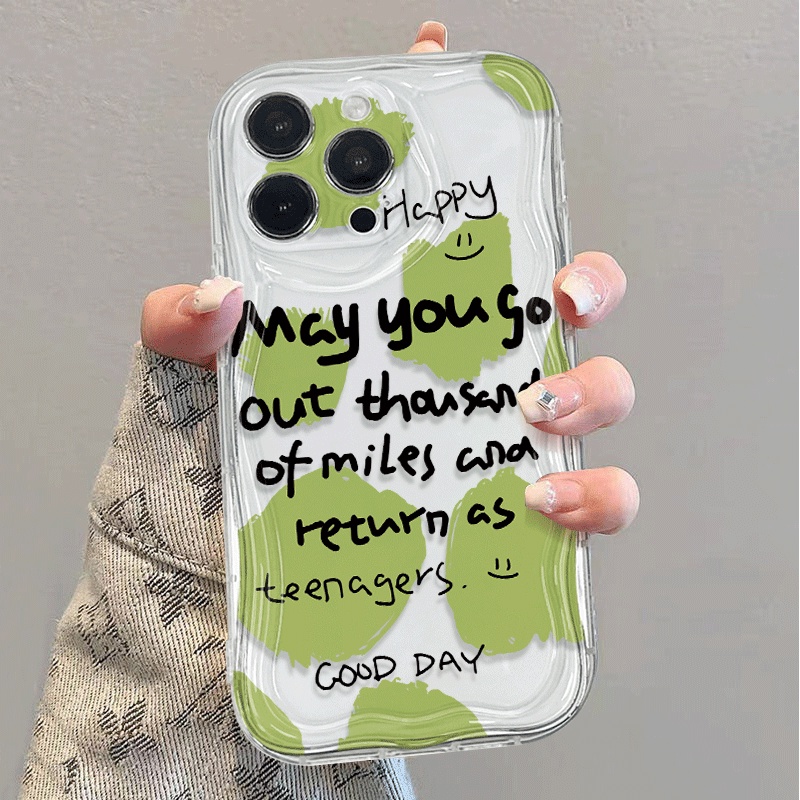 Happy
May you go
out thousand
of miles and
return as
teenagers.
GOOD DAY